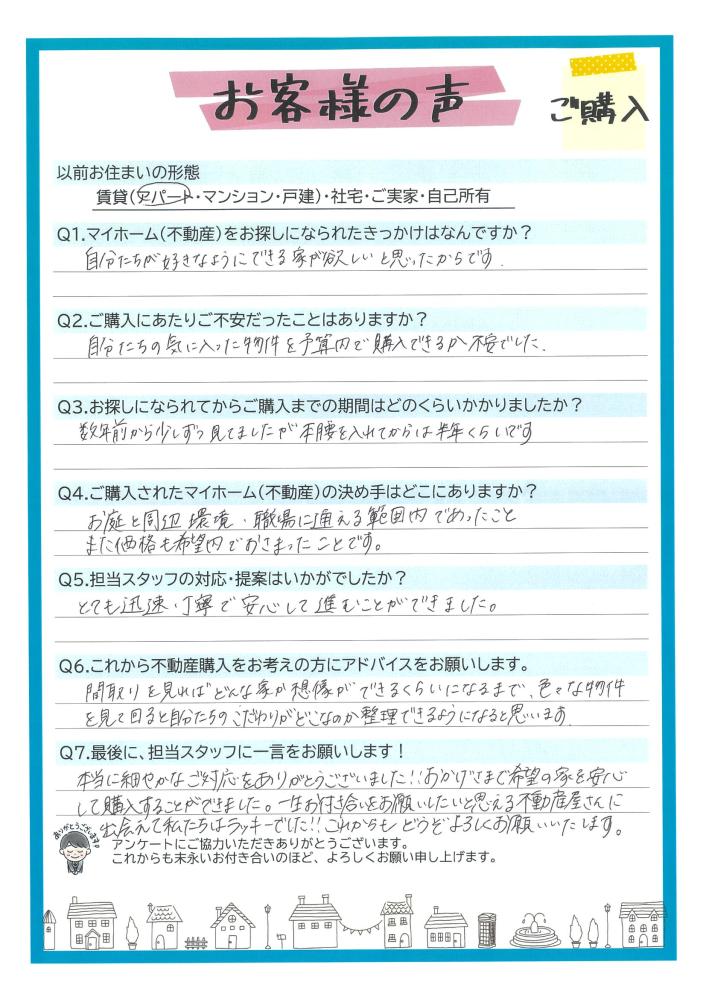 お客様の声
ご購入
以前お住まいの形態
賃貸(アパート・マンション・戸建)・社宅・ご実家・自己所有
Q1.マイホーム(不動産)をお探しになられたきっかけはなんですか?
自分たちが好きなようにできる家が欲しいと思ったからです.
Q2.ご購入にあたりご不安だったことはありますか?
自分たちの気に入った物件を予算内で購入できるか不安でした.
Q3.お探しになられてからご購入までの期間はどのくらいかかりましたか?
数年前から少しずつ見てましたが本腰を入れてからは半年くらいです
Q4.ご購入されたマイホーム(不動産)の決め手はどこにありますか?
お庭と周辺環境・職場に通える範囲内であったこと
また価格も希望内でおさまったことです。
Q5.担当スタッフの対応・提案はいかがでしたか?
とても迅速・丁寧で安心して進むことができました。
Q6.これから不動産購入をお考えの方にアドバイスをお願いします。
間取りを見ればどんな家か想像ができるくらいになるまで、色々な物件
を見て回ると自分たちのこだわりがどこなのか整理できるようになると思います.
Q7.最後に、担当スタッフに一言をお願いします!
本当に細やかなご対応をありがとうございました!!おかげさまで希望の家を安心
して購入することができました。一生お付き合いをお願いしたいと思える不動産屋さんに
出会えて私たちはラッキーでした!!これからもどうぞよろしくお願いいたします。
ありがとうございます!
アンケートにご協力いただきありがとうございます。
これからも末永いお付き合いのほど、よろしくお願い申し上げます。